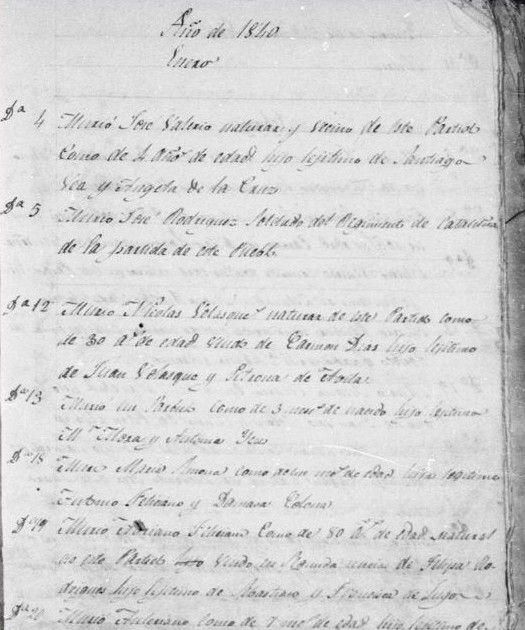 Año de 1840
Enero
Dia 4 Murio José Valerio natural y vecino de este Partido
como de 4 añoˢ de edad hijo lejitimo de Santiago
Vea y Angela de la Cruz
Dia 5 Murio José Rodriguez Soldado del Regimiento de Cataluña
de la partida de este Puebl.
Dia 12 Murio Nicolas Velasqueˢ natural de este Partido como
de 30 aˢ de edad viudo de Carmen Dias hijo lejitimo
de Juan Velasque y Petrona de Avila
Dia 13 Murio un Parbulo como de 3 meˢ de nacido hijo lejitimo
Mˡ Mora y Antonia
Dia 15 Murio Maria Simona como de un meˢ de edad hija legitima
Antonio Feliciano y Damasa Colon
Dia 19 Murio Feliciano como de 80 aˢ de edad natural
de este Partido viudo en segunda nuncias de Felipa Ro-
driguez hijo lejitimo de Sebastian y Francisca de Lugo
Murio como de 7 meˢ de edad hijo lejitimo de